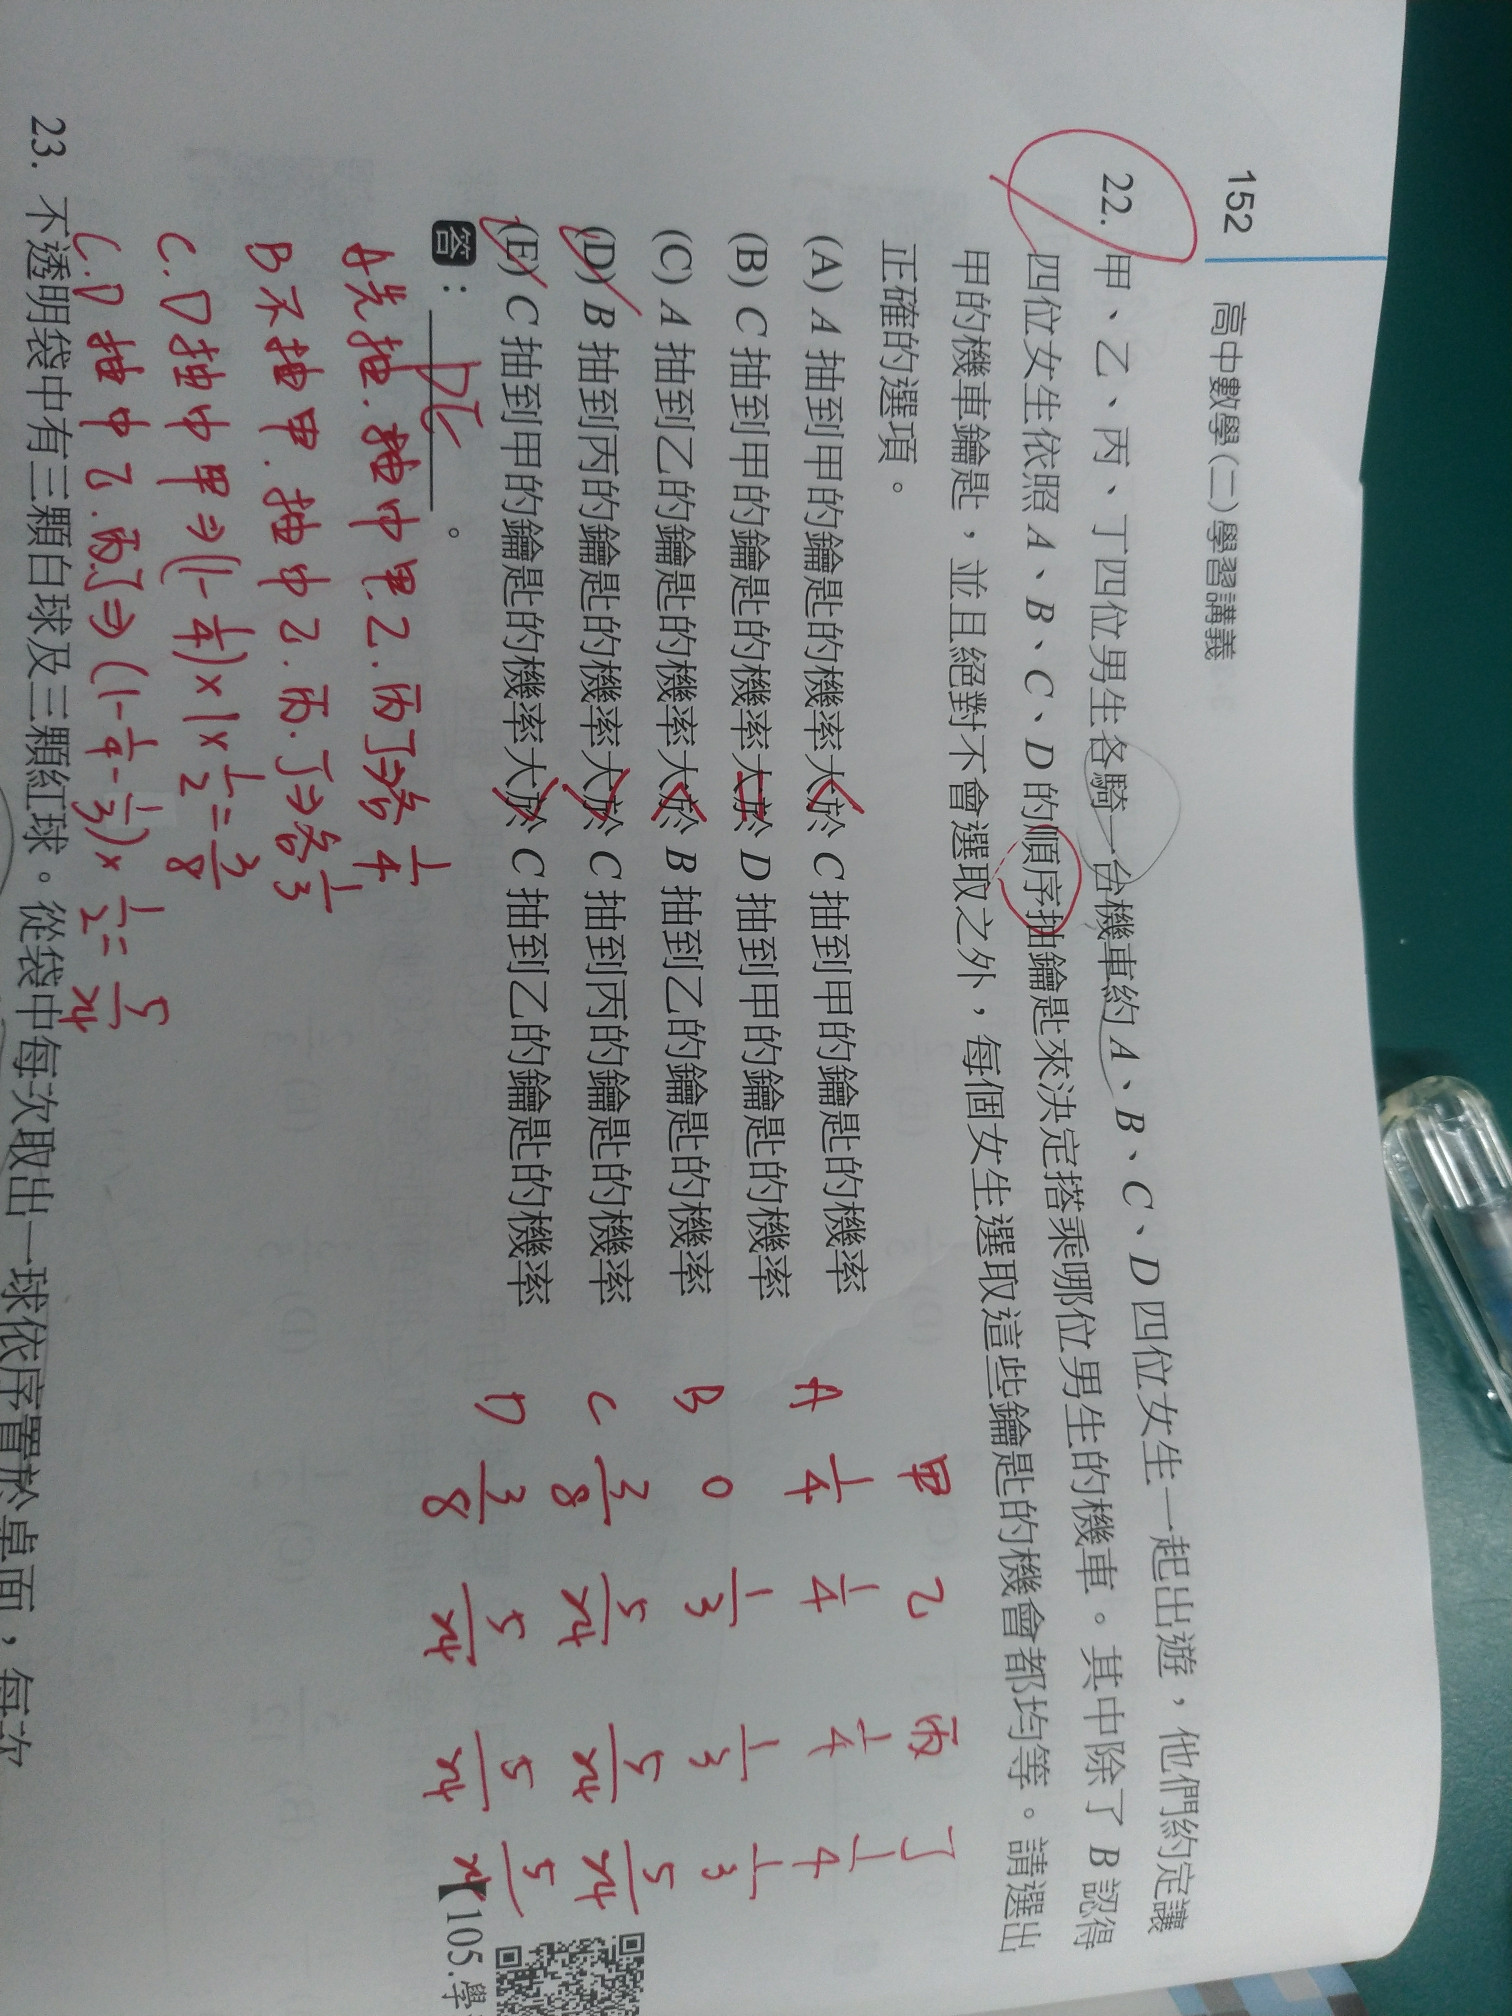 152 高中數學(二)學習講義
22. 甲、乙、丙、丁四位男生各騎一台機車約 A、B、C、D 四位女生一起出遊,他們約定讓
四位女生依照 A、B、C、D 的順序抽鑰匙來決定搭乘哪位男生的機車。其中除了 B 認得
甲的機車鑰匙,並且絕對不會選取之外,每個女生選取這些鑰匙的機會都均等。請選出
正確的選項。
(A) A 抽到甲的鑰匙的機率大於 C 抽到甲的鑰匙的機率
(B) C 抽到甲的鑰匙的機率大於 D 抽到甲的鑰匙的機率
(C) A 抽到乙的鑰匙的機率大於 B 抽到乙的鑰匙的機率
(D) B 抽到丙的鑰匙的機率大於 C 抽到丙的鑰匙的機率
(E) C 抽到甲的鑰匙的機率大於 C 抽到乙的鑰匙的機率
答:DE。
【105.學
甲 乙 丙 丁
A 1/4 1/4 1/4 1/4
B 0 1/3 1/3 1/3
C 3/8 5/24 5/24 5/24
D 3/8 5/24 5/24 5/24
A先抽.抽中甲.乙.丙丁⇒各1/4
B不抽甲.抽中乙.丙.丁⇒各1/3
C.D抽中甲⇒(1-1/4)×1×1/2=3/8
C.D抽中乙.丙.丁⇒(1-1/4-1/3)×1/2=5/24
23. 不透明袋中有三顆白球及三顆紅球。從袋中每次取出一球依序置於桌面,每次